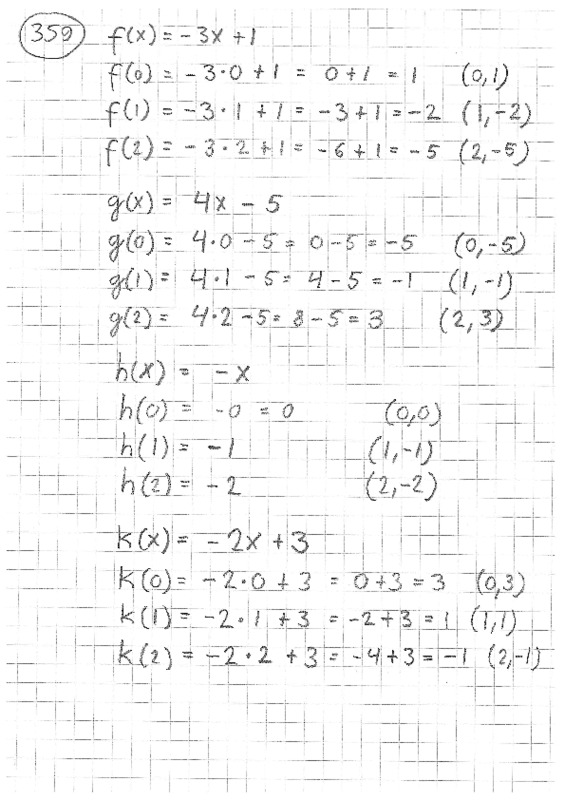 359 f(x) = -3x + 1
f(0) = -3·0 + 1 = 0+1 = 1 (0,1)
f(1) = -3·1 + 1 = -3+1 = -2 (1,-2)
f(2) = -3·2 + 1 = -6+1 = -5 (2,-5)
g(x) = 4x - 5
g(0) = 4·0 - 5 = 0-5 = -5 (0,-5)
g(1) = 4·1 - 5 = 4-5 = -1 (1,-1)
g(2) = 4·2 - 5 = 8-5 = 3 (2,3)
h(x) = -x
h(0) = -0 = 0 (0,0)
h(1) = -1 (1,-1)
h(2) = -2 (2,-2)
k(x) = -2x + 3
k(0) = -2·0 + 3 = 0+3 = 3 (0,3)
k(1) = -2·1 + 3 = -2+3 = 1 (1,1)
k(2) = -2·2 + 3 = -4+3 = -1 (2,-1)